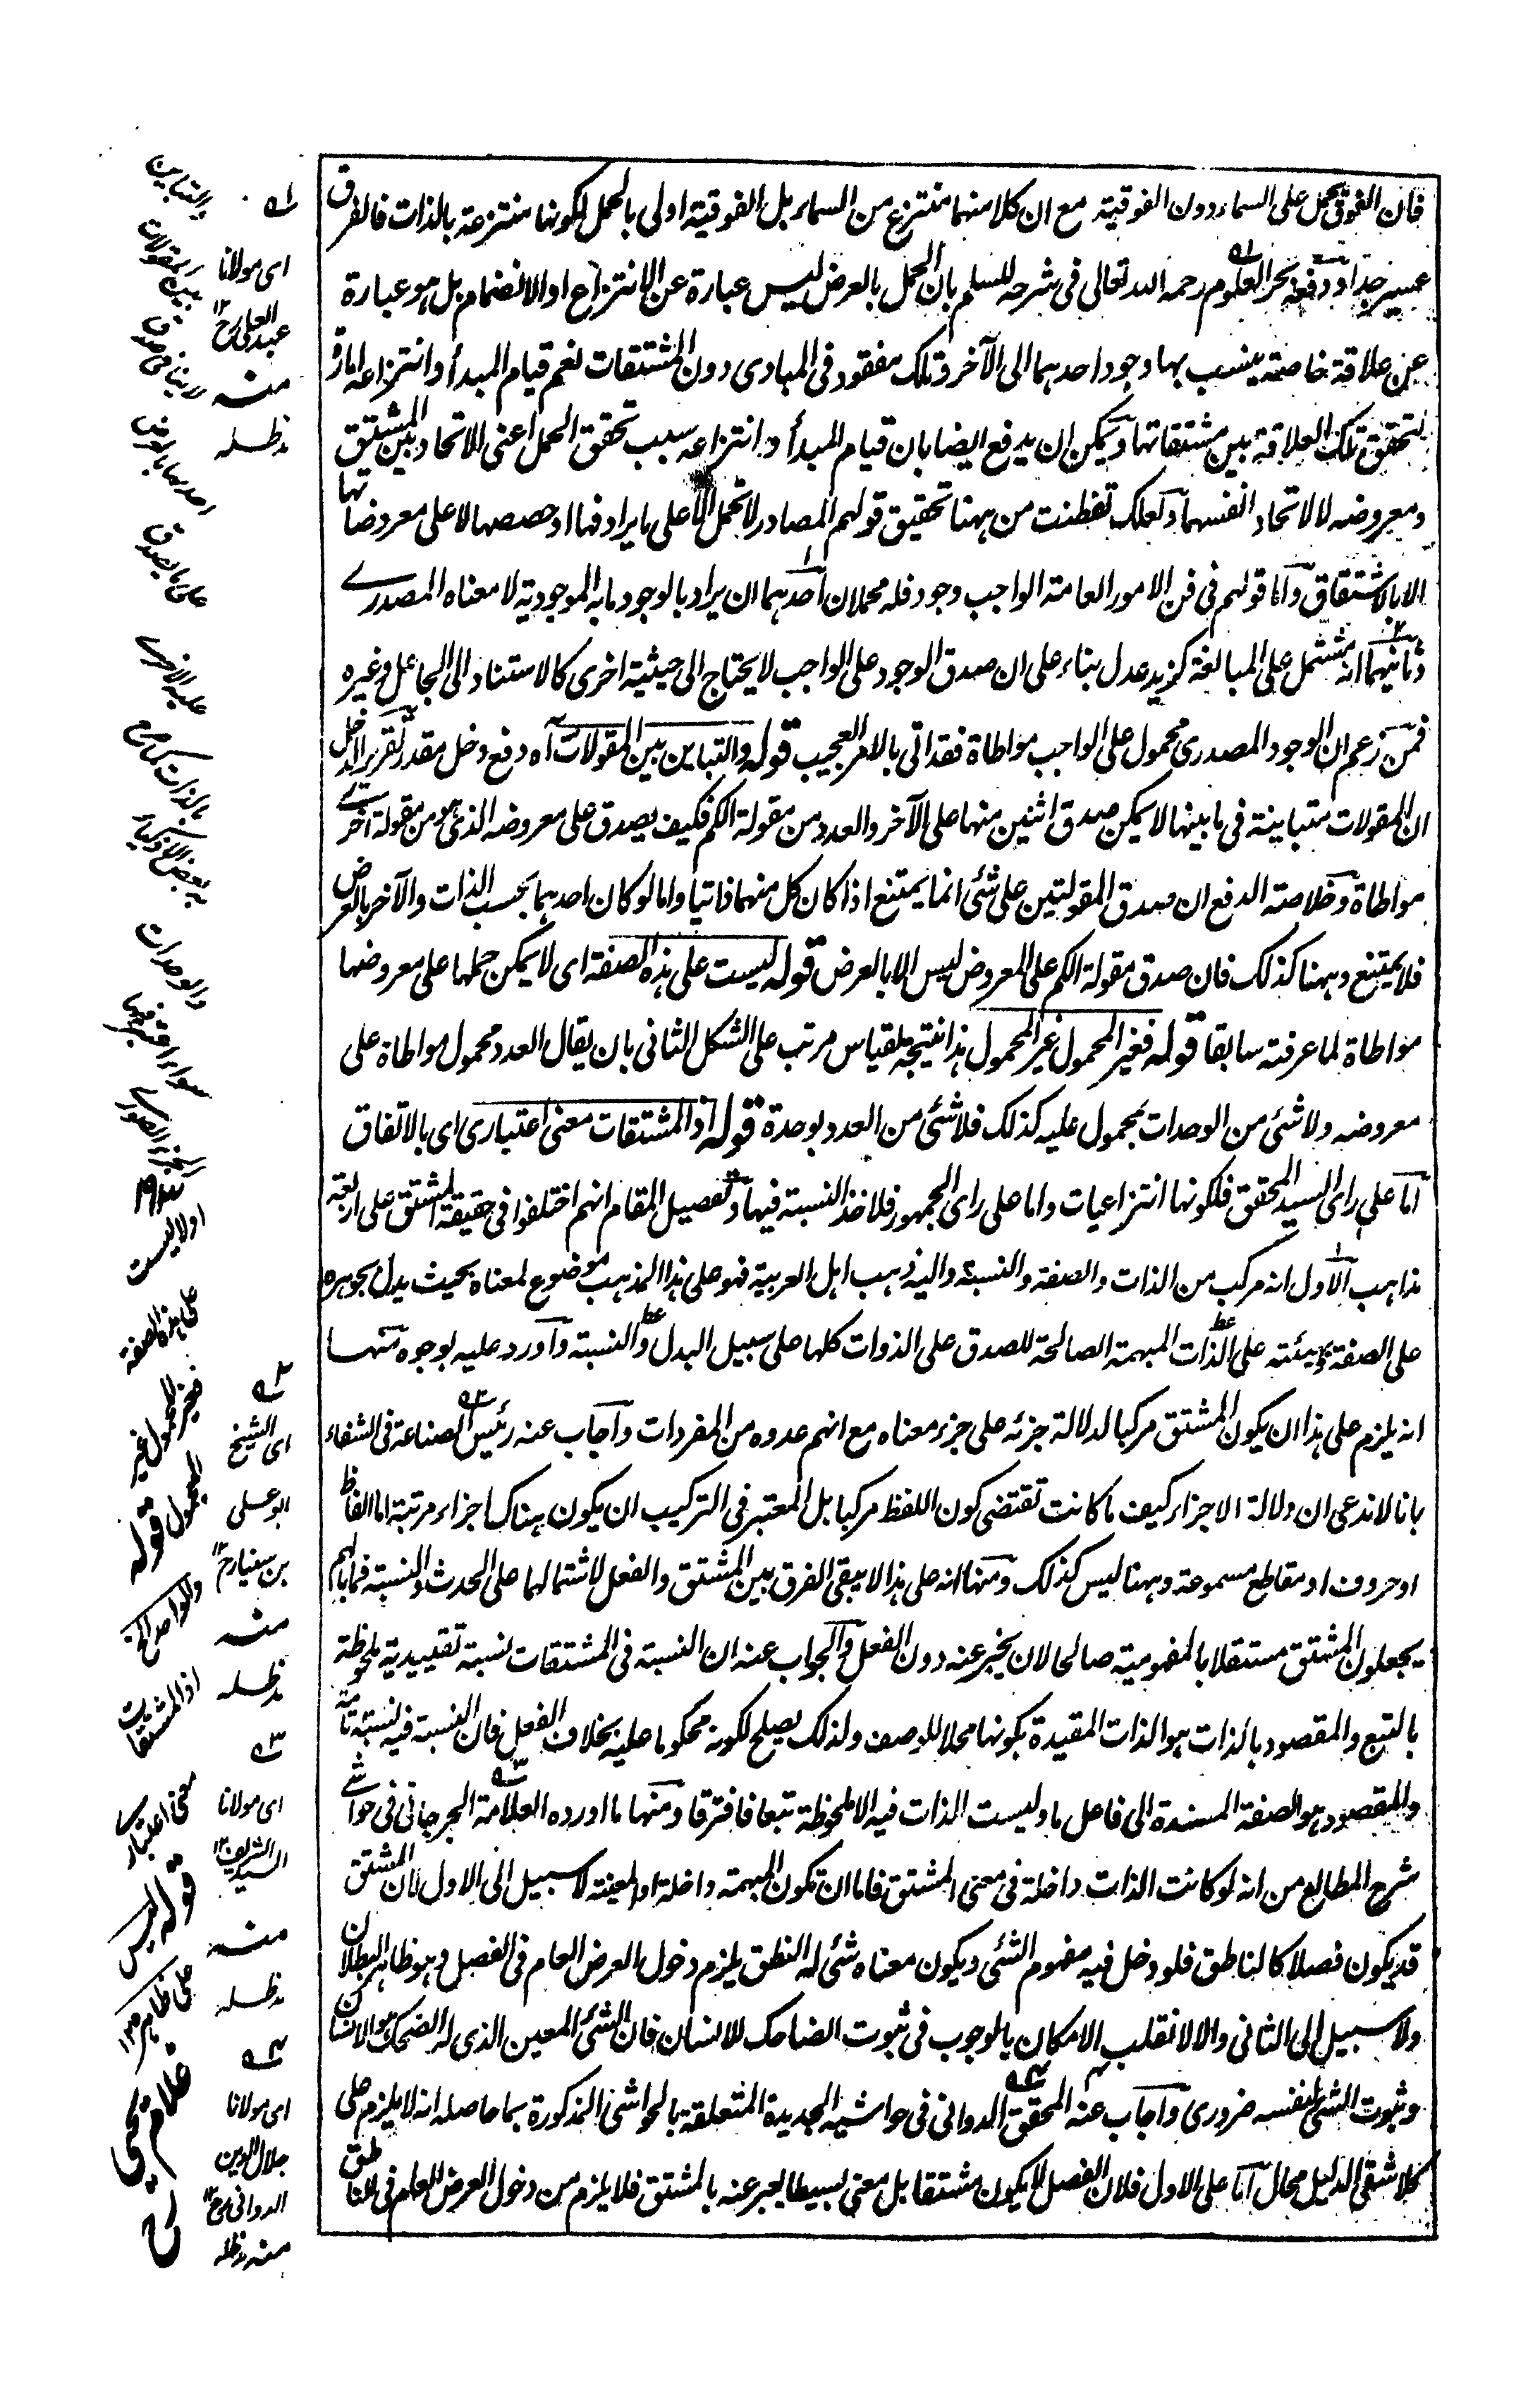 فان الفوق يحمل على السماء دون الفوقية مع ان كلا منهما منتزع من السماء بل الفوقية اولى بالحمل لكونها منتزعة بالذات فالفرق
عسير جدا ودفعه بحر العلوم رحمه الله تعالى فى شرحه للسلم بان الحمل بالعرض ليس عبارة عن الانتزاع او الانضمام بل هو عبارة
عن علاقة خاصة ينسب بها وجود احدهما الى الآخر وتلك مفقود فى المبادى دون المشتقات نعم قيام المبدأ وانتزاعه امارة
لتحقق تلك العلاقة بين مشتقاتها ويمكن ان يدفع ايضا بان قيام المبدأ وانتزاعه سبب تحقق الحمل اعنى الاتحاد بين المشتق
ومعروضه لا لاتحاد انفسهما ولعلك تفطنت من ههنا تحقيق قولهم المصادر لا تحمل الا على ما يرادفها او حصصها لا على معروضاتها
الا بالاشتقاق واما قولهم فى فن الامور العامة الواجب وجود فله محملان احدهما ان يراد بالوجود ما به الموجودية لا معناه المصدرى
وثانيهما انه مشتمل على المبالغة كزيد عدل بناء على ان صدق الوجود على الواجب لا يحتاج الى حيثية اخرى كالاستناد الى الجاعل وغيره
فمن زعم ان الوجود المصدرى محمول على الواجب مواطاة فقد اتى بالامر العجيب قوله والتباين بين المقولات آه دفع دخل مقدر تقرير الدخل
ان المقولات متباينة فى ما بينها لا يمكن صدق اثنين منها على الآخر والعدد من مقولة الكم فكيف يصدق على معروضه الذى هو من مقولة اخرى
مواطاة وخلاصة الدفع ان صدق المقولتين على شئ انما يمتنع اذا كان كل منهما ذاتيا واما لو كان احدهما بحسب الذات والآخر بالعرض
فلا يمتنع وههنا كذلك فان صدق مقولة الكم على المعروض ليس الا بالعرض قوله ليست على هذه الصفة اى لا يمكن حملها على معروضها
مواطاة لما عرفته سابقا قوله فغير المحمول غير المحمول هذا نتيجة لقياس مرتب على الشكل الثانى بان يقال العدد محمول مواطاة على
معروضه ولا شئ من الوحدات بمحمول عليه كذلك فلا شئ من العدد بوحدة قوله اذ المشتقات معنى اعتبارى اى بالاتفاق
اما على راى السيد المحقق فلكونها انتزاعيات واما على راى الجمهور فلاخذ النسبة فيها وتفصيل المقام انهم اختلفوا فى حقيقة المشتق على اربعة
مذاهب الاول انه مركب من الذات والصفة والنسبة واليه ذهب اهل العربية فهو على هذا المذهب موضوع لمعناه بحيث يدل بجوهره
على الصفة وبهيئته على الذات المبهمة الصالحة للصدق على الذوات كلها على سبيل البدل والنسبة واورد عليه بوجوه منها
انه يلزم على هذا ان يكون المشتق مركبا لدلالة جزئه على جزء معناه مع انهم عدوه من المفردات واجاب عنه رئيس الصناعة فى الشفاء
بانا لا ندعى ان دلالة الاجزاء كيف ما كانت تقتضى كون اللفظ مركبا بل المعتبر فى التركيب ان يكون هناك اجزاء مرتبة اما الفاظ
او حروف او مقاطع مسموعة وههنا ليس كذلك ومنها انه على هذا لا يبقى الفرق بين المشتق والفعل لاشتمالهما على الحدث والنسبة فما بالهم
يجعلون المشتق مستقلا بالمفهومية صالحا لان يخبر عنه دون الفعل والجواب عنه ان النسبة فى المشتقات نسبة تقييدية ملحوظة
بالتبع والمقصود بالذات هو الذات المقيدة بكونها محلا للوصف ولذلك يصلح لكونه محكوما عليه بخلاف الفعل فان النسبة فيه نسبة تامة
والمقصود هو الصفة المسندة الى فاعل ما وليست الذات فيه الا ملحوظة تبعا فافترقا ومنها ما اورده العلامة الجرجانى فى حواشى
شرح المطالع من انه لو كانت الذات داخلة فى معنى المشتق فاما ان تكون المبهمة داخلة او المعينة لا سبيل الى الاول لان المشتق
قد يكون فصلا كالناطق فلو دخل فيه مفهوم الشئ ويكون معناه شئ له النطق يلزم دخول العرض العام فى الفصل وهو ظاهر البطلان
ولا سبيل الى الثانى والا لانقلب الامكان بالوجوب فى ثبوت الضاحك للانسان فان الشئ المعين الذى له الضحك هو الانسان
وثبوت الشئ لنفسه ضرورى واجاب عنه المحقق الدوانى فى حواشيه الجديدة المتعلقة بالحواشى المذكورة بما حاصله انه لا يلزم على
كلا شقى الدليل محال اما على الاول فلان الفصل لا يكون مشتقا بل معنى بسيطا يعبر عنه بالمشتق فلا يلزم من دخول العرض العام فى الناطق
له
اى مولانا
عبد العلى رح ١٢
منه
مد ظله
٢ه
اى الشيخ
ابو على
بن سينا رح ١٢
منه
مد ظله
٣ه
اى مولانا
السيد الشريف ١٢
منه
مد ظله
٤ه
اى مولانا
جلال الدين
الدوانى رح ١٢
منه مد ظله
والتباين
بين المقولات
احدهما بالعرض
على ما يصدق
عليه الاخرى
بالذات كما صرح
به بعض الاذكياء
والوحدات
سواء اعتبر فيها
الجزء الصورى
اولا ليست
على هذه الصفة
فغير المحمول غير
المحمول قوله
اذ المشتقات
معنى اعتبارى
قوله ليس
على ظاهره ١٢
غلام يحيى
رح